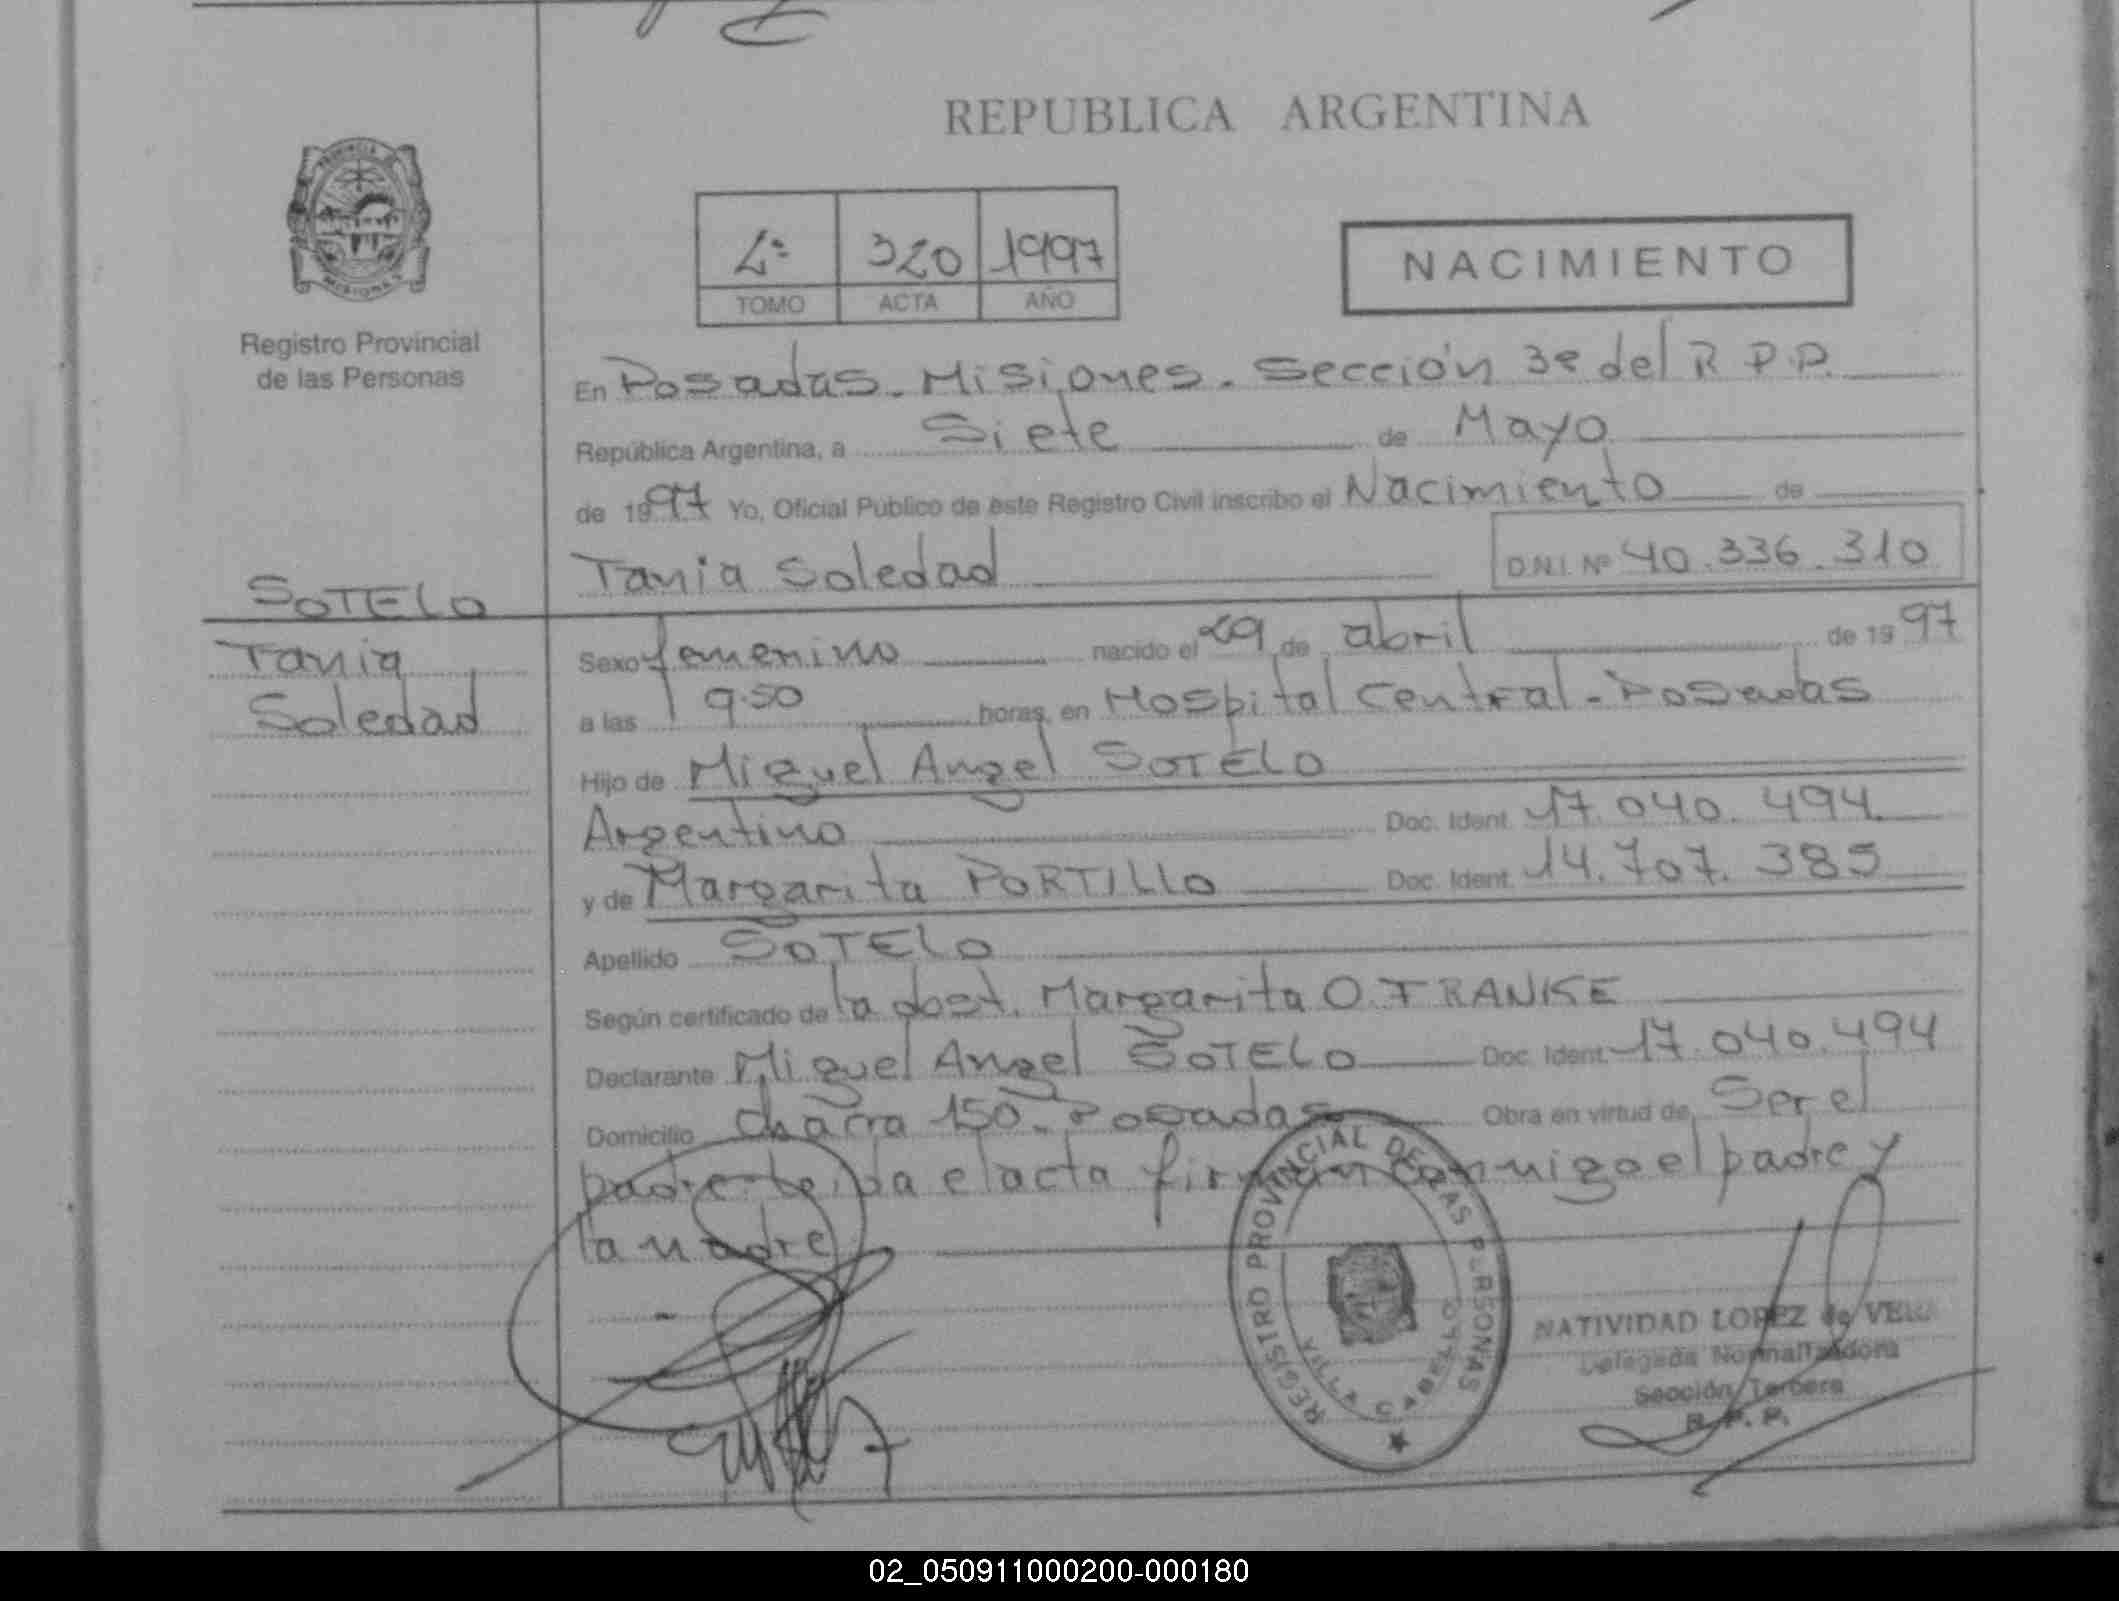 REPUBLICA ARGENTINA
PROVINCIA
MISIONES
Registro Provincial
de las Personas
2º 320 1997
TOMO ACTA AÑO
NACIMIENTO
En Posadas. Misiones. Sección 3º del R P.P.
República Argentina, a Siete de Mayo
de 1997 Yo, Oficial Público de este Registro Civil inscribo el Nacimiento de
Tania Soledad D.N.I. Nº 40.336.310
SOTELO
Tania
Soledad
Sexo femenino nacido el 29 de abril de 1997
a las 9.50 horas, en Hospital Central - Posadas
Hijo de Miguel Angel SOTELO
Argentino Doc. Ident. 17.040.494
y de Margarita PORTILLO Doc. Ident. 14.707.385
Apellido SOTELO
Según certificado de la obst. Margarita O. FRANKE
Declarante Miguel Angel SOTELO Doc. Ident. 17.040.494
Domicilio Chacra 150. Posadas Obra en virtud de Ser el
padre leida el acta firman conmigo el padre y
la madre
REGISTRO PROVINCIAL DE LAS PERSONAS
NATIVIDAD LOPEZ de VERA
Delegada Normalizadora
Sección Tercera
R. P. P.
02_050911000200-000180